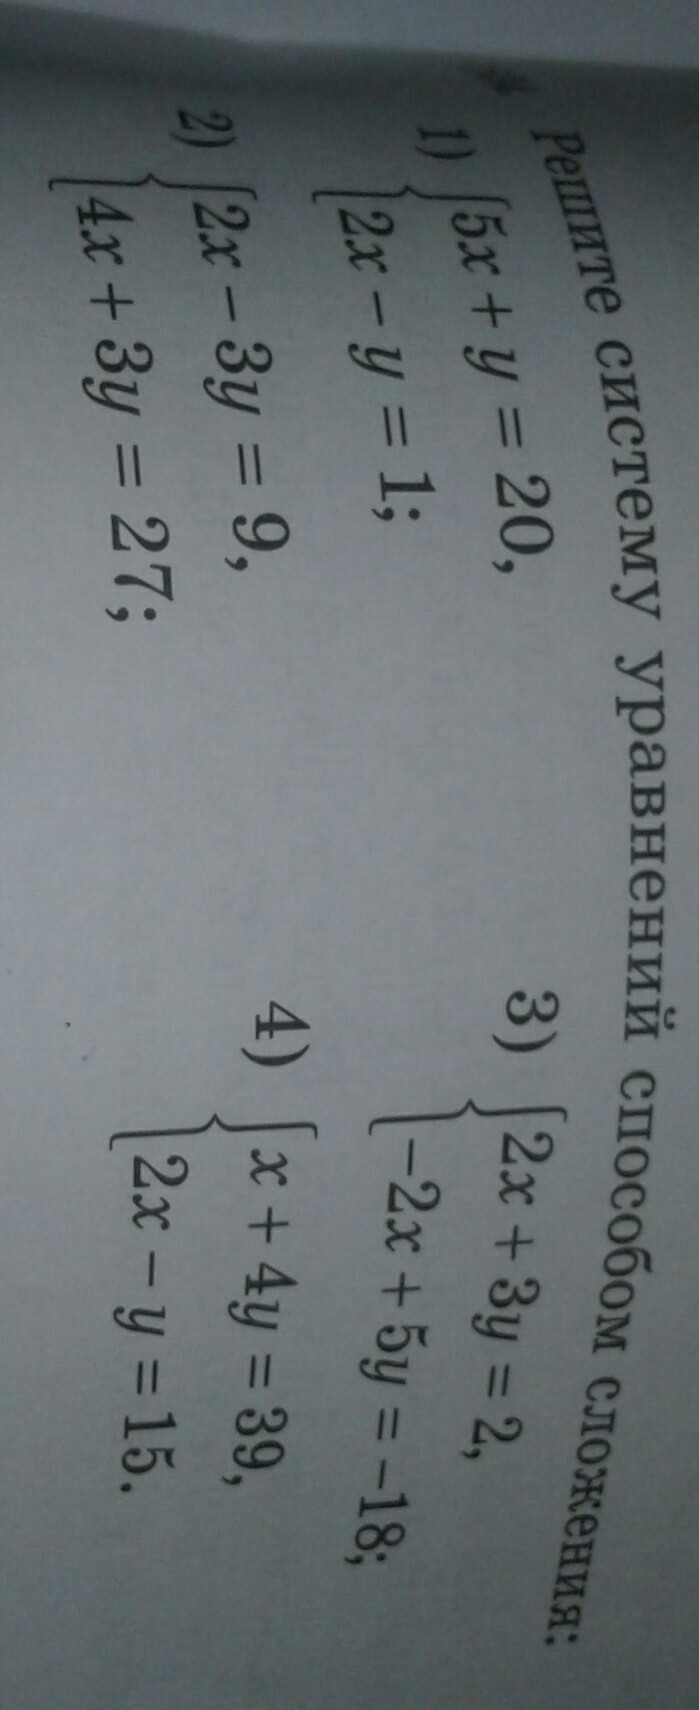 Решите систему уравнений способом сложения:
1) {5x + y = 20,
2x − y = 1;
2) {2x − 3y = 9,
4x + 3y = 27;
3) {2x + 3y = 2,
−2x + 5y = −18;
4) {x + 4y = 39,
2x − y = 15.